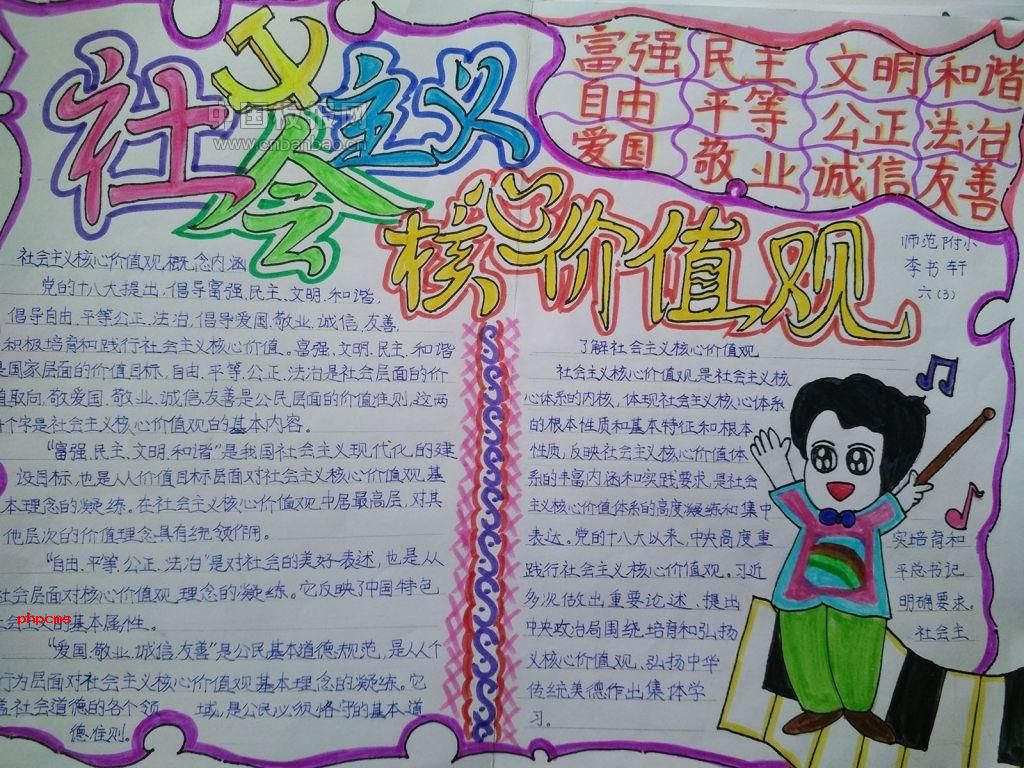 社会主义
核心价值观
中国板报网
www.cnbanbao.cn
富强 民主 文明 和谐
自由 平等 公正 法治
爱国 敬业 诚信 友善
师范附小
李书轩
六(3)
社会主义核心价值观概念内涵
党的十八大提出,倡导富强、民主、文明、和谐,
倡导自由、平等公正、法治,倡导爱国、敬业、诚信、友善,
积极培育和践行社会主义核心价值。富强、文明、民主、和谐
是国家层面的价值目标,自由、平等、公正、法治是社会层面的价
值取向,敬爱国、敬业、诚信、友善是公民层面的价值准则,这两
个字是社会主义核心价值观的基本内容。
“富强、民主、文明、和谐”是我国社会主义现代化的建
设目标,也是人从价值目标层面对社会主义核心价值观、基
本理念的凝练。在社会主义核心价值观中居最高层,对其
他层次的价值理念具有统领作用。
“自由、平等、公正、法治”是对社会的美好表述,也是从
社会层面对核心价值观理念的凝练。它反映了中国特色
社会主义的基本属性。
phpcms
“爱国、敬业、诚信、友善”是公民基本道德规范,是从个
行为层面对社会主义核心价值观基本理念的凝练。它
盖社会道德的各个领域,是公民必须恪守的基本道
德准则。
了解社会主义核心价值观
社会主义核心价值观是社会主义核
心体系的内核,体现社会主义核心体系
的根本性质和基本特征和根本
性质,反映社会主义核心价值体
系的丰富内涵和实践要求,是社会
主义核心价值体系的高度凝练和集中
表达。党的十八大以来,中央高度重 实培育和
践行社会主义核心价值观。习近 平总书记
多次做出重要论述、提出 明确要求。
中央政治局围绕培育和弘扬 社会主
义核心价值观、弘扬中华
传统美德作出集体学
习。